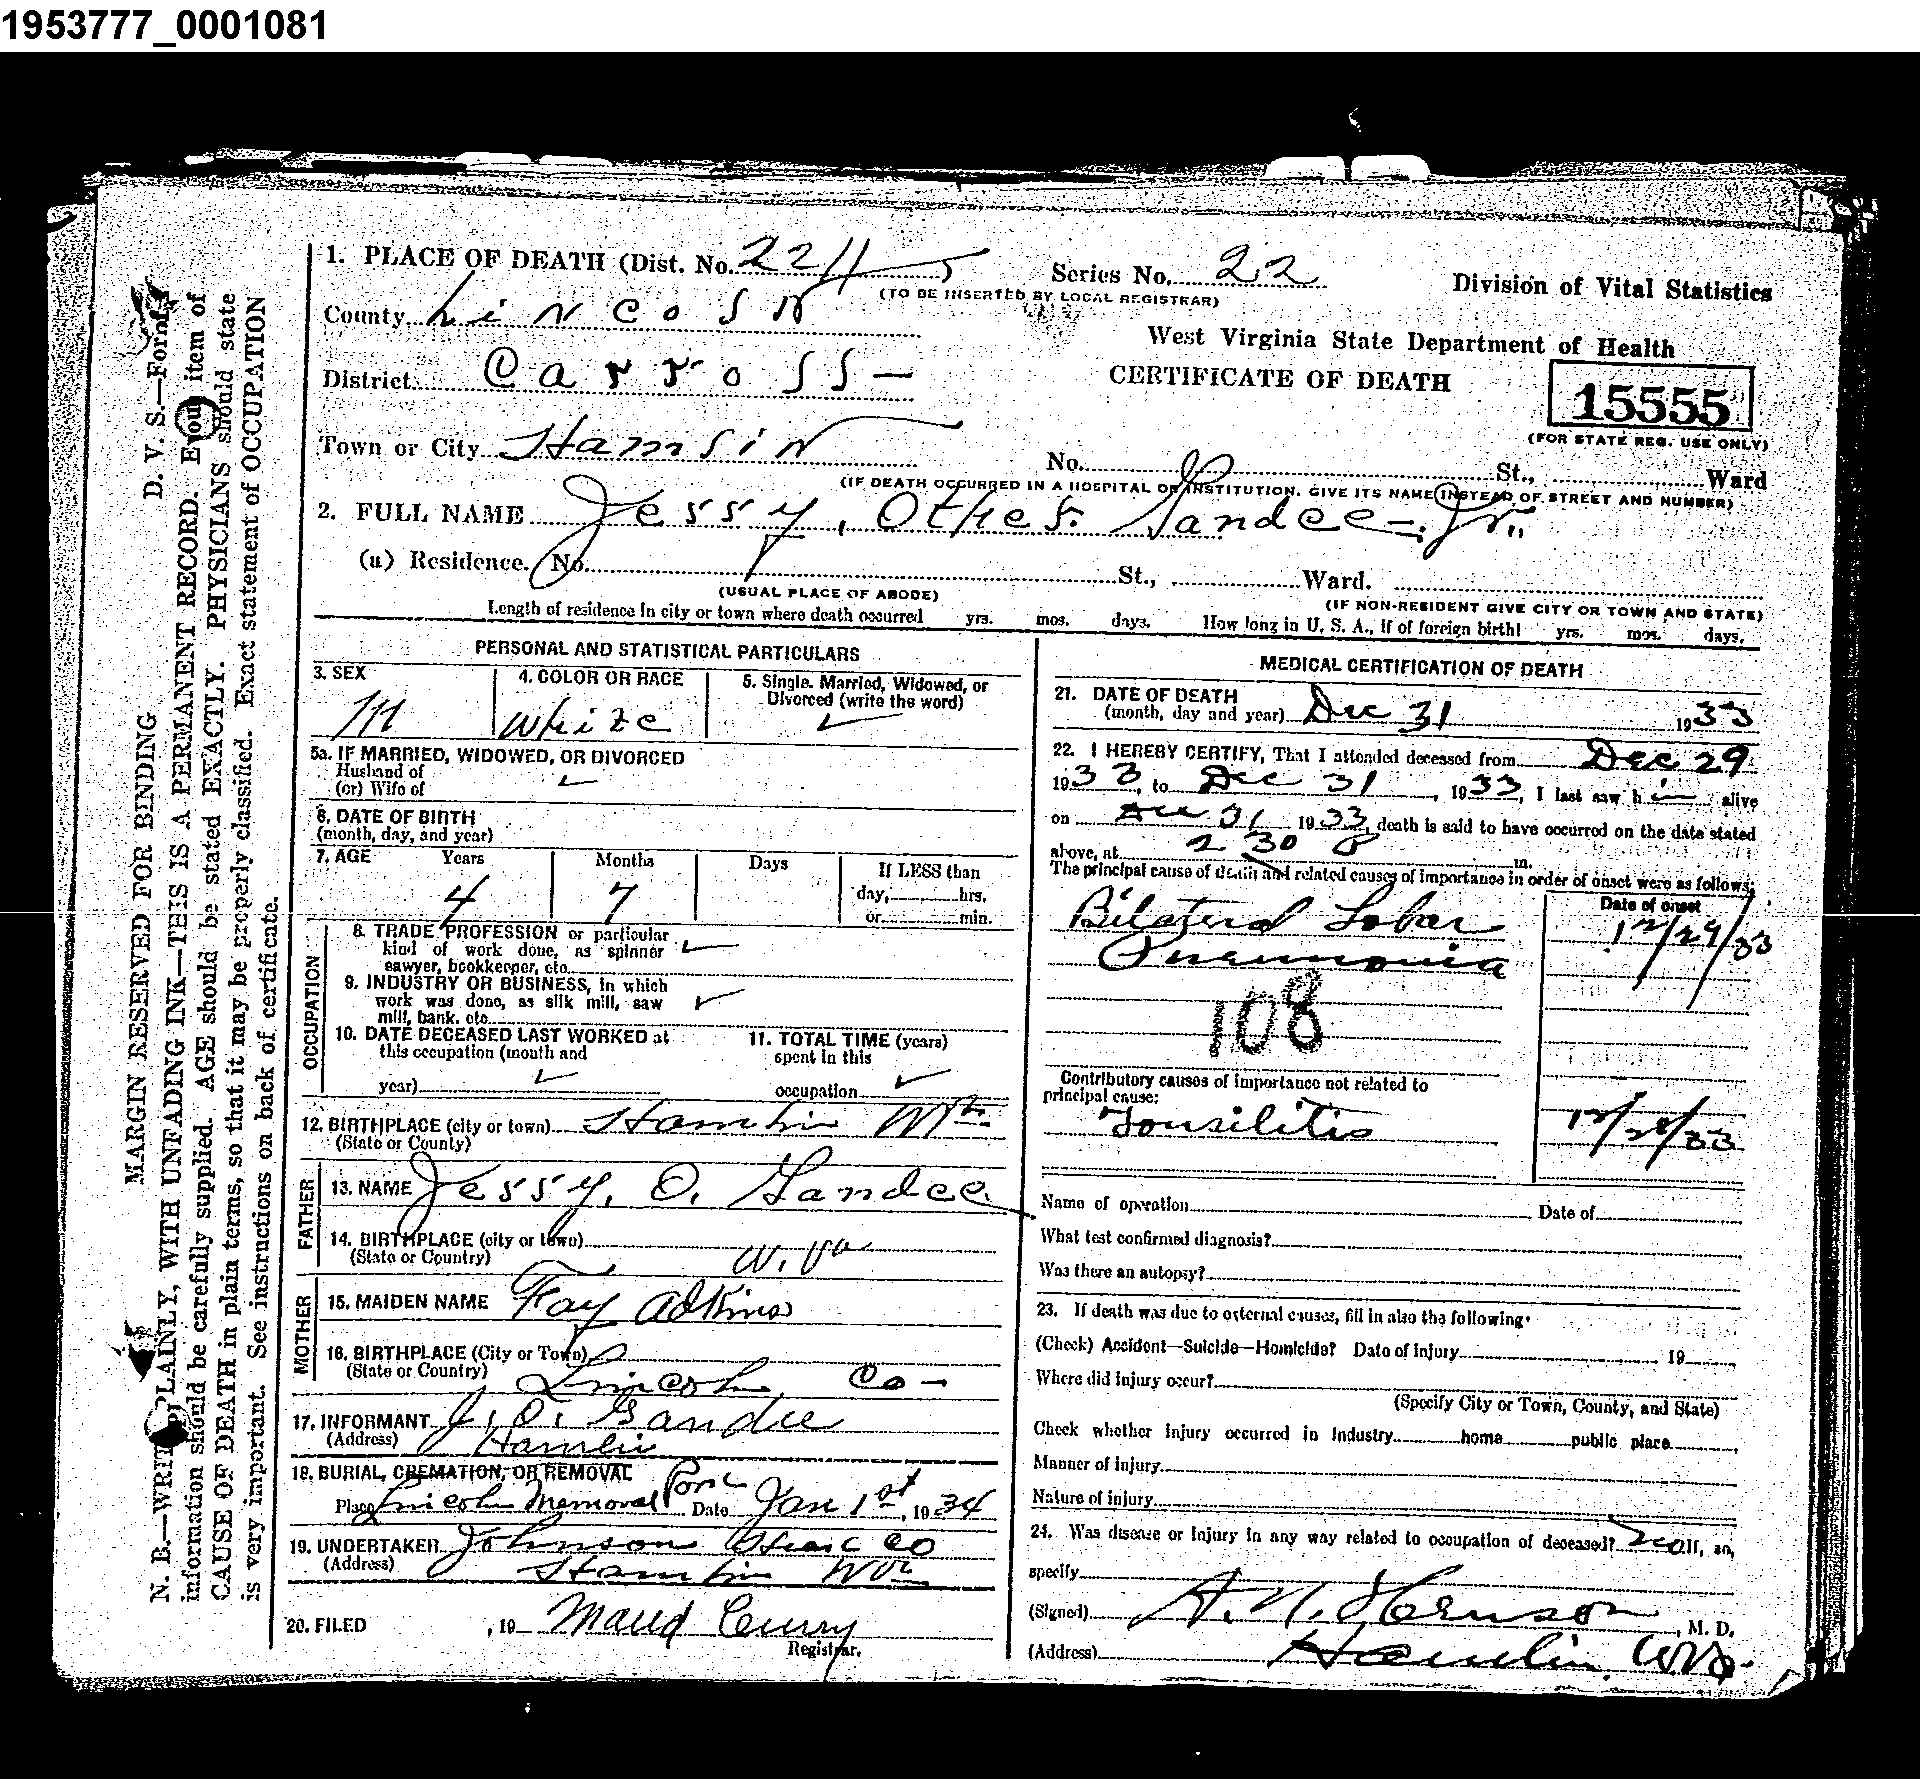 1953777_0001081
1. PLACE OF DEATH (Dist. No. 2245
Series No. 22
Division of Vital Statistics
(TO BE INSERTED BY LOCAL REGISTRAR)
County Lincoln
West Virginia State Department of Health
District Carroll -
CERTIFICATE OF DEATH
15555
(FOR STATE REG. USE ONLY)
Town or City Hamlin
No. St., Ward
(IF DEATH OCCURRED IN A HOSPITAL OR INSTITUTION, GIVE ITS NAME INSTEAD OF STREET AND NUMBER)
2. FULL NAME Jessy, Othes. Gandee-Jr.
(a) Residence. No. St., Ward.
(USUAL PLACE OF ABODE)
(IF NON-RESIDENT GIVE CITY OR TOWN AND STATE)
Length of residence in city or town where death occurred yrs. mos. days. How long in U. S. A., if of foreign birth! yrs. mos. days.
PERSONAL AND STATISTICAL PARTICULARS
3. SEX
M
4. COLOR OR RACE
White
5. Single. Married, Widowed, or
Divorced (write the word)
5a. IF MARRIED, WIDOWED, OR DIVORCED
Husband of
(or) Wife of
6. DATE OF BIRTH
(month, day, and year)
7. AGE Years Months Days If LESS than
4 7 day, hrs.
or min.
OCCUPATION
8. TRADE PROFESSION or particular
kind of work done, as spinner
sawyer, bookkeeper, etc.
9. INDUSTRY OR BUSINESS, in which
work was done, as silk mill, saw
mill, bank. etc.
10. DATE DECEASED LAST WORKED at
this occupation (month and
year)
11. TOTAL TIME (years)
spent in this
occupation
12. BIRTHPLACE (city or town) Hamlin WVa
(State or County)
FATHER
13. NAME Jessy. O. Gandee.
14. BIRTHPLACE (city or town)
(State or Country) W. Va
MOTHER
15. MAIDEN NAME Fay Adkins
16. BIRTHPLACE (City or Town)
(State or Country) Lincoln, Co-
17. INFORMANT J. O. Gandee
(Address) Hamlin
18. BURIAL, CREMATION, OR REMOVAL
Place Lincoln Memorial Park Date Jan 1st, 1934
19. UNDERTAKER Johnson Co
(Address) Hamlin WVa
20. FILED , 19 Maud Curry
Registrar.
MEDICAL CERTIFICATION OF DEATH
21. DATE OF DEATH
(month, day and year) Dec 31 1933
22. I HEREBY CERTIFY, That I attended deceased from Dec 29
1933, to Dec 31, 1933, I last saw him alive
on Dec 31 1933, death is said to have occurred on the date stated
above, at 2 30 P m.
The principal cause of death and related causes of importance in order of onset were as follows:
Date of onset
Bilateral Lobar 12/29/33
Pneumonia
108
Contributory causes of importance not related to
principal cause:
Tonsilitis 12/28/33
Name of operation Date of
What test confirmed diagnosis?
Was there an autopsy?
23. If death was due to external causes, fill in also the following:
(Check) Accident—Suicide—Homicide? Date of injury 19
Where did injury occur?
(Specify City or Town, County, and State)
Check whether injury occurred in industry home public place
Manner of injury
Nature of injury
24. Was disease or injury in any way related to occupation of deceased? no If, so,
specify
(Signed) , M. D.
(Address) Hamlin. WVa.
MARGIN RESERVED FOR BINDING
D. V. S.—Form
N. B.—WRITE PLAINLY, WITH UNFADING INK—THIS IS A PERMANENT RECORD. Every item of
information should be carefully supplied. AGE should be stated EXACTLY. PHYSICIANS should state
CAUSE OF DEATH in plain terms, so that it may be properly classified. Exact statement of OCCUPATION
is very important. See instructions on back of certificate.